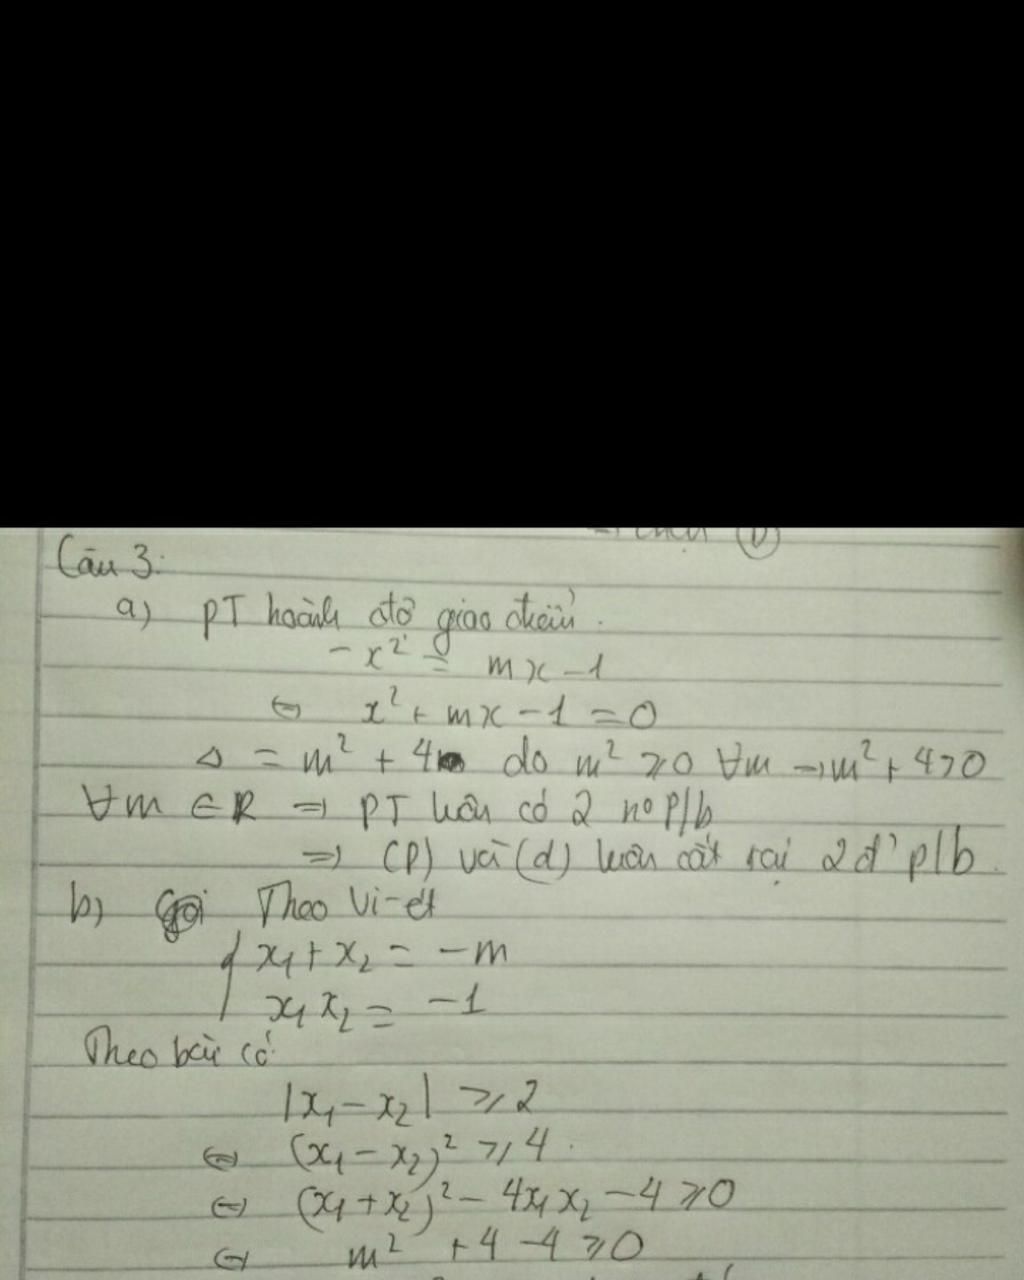 Câu 3:
a) PT hoành độ giao điểm.
-x² = mx - 1
⇔ x² + mx - 1 = 0
Δ = m² + 4 do m² ≥ 0 ∀m → m² + 4 > 0
∀m ∈ R ⇒ PT luôn có 2 n⁰ p/b
⇒ (P) và (d) luôn cắt tại 2 đ' p/b.
b) Theo Vi-ét
{ x₁ + x₂ = -m
x₁x₂ = -1
Theo bài có
|x₁ - x₂| ≥ 2
⇔ (x₁ - x₂)² ≥ 4.
⇔ (x₁ + x₂)² - 4x₁x₂ - 4 ≥ 0
⇔ m² + 4 - 4 ≥ 0